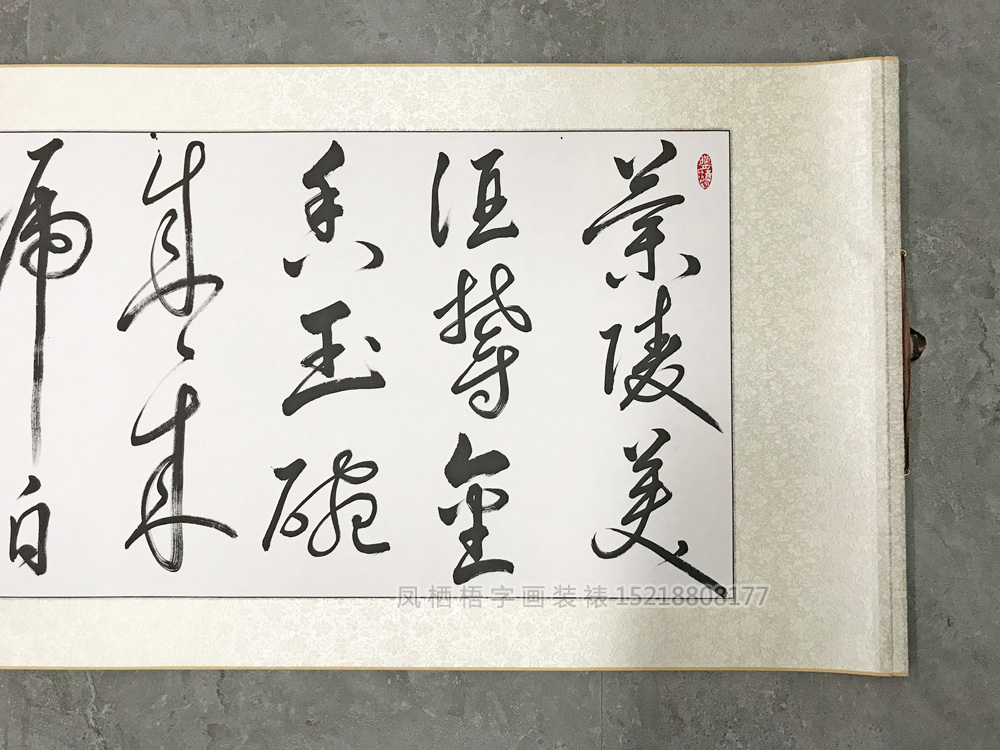 蘭陵美
酒鬱金
香玉碗
盛來
琥珀
凤栖梧字画装裱 15218808177